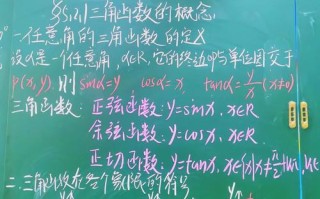 §5.2.1 三角函数的概念
一 任意角的三角函数的定义
设α是一个任意角, α∈R, 它的终边OP与单位圆交于
P(x, y), 则 sinα=y cosα=x, tanα=y/x (x≠0)
三角函数: 正弦函数: y=sinx, x∈R
余弦函数: y=cosx, x∈R
正切函数: y=tanx, x∈{x|x≠π/2+kπ, k∈
二. 三角函数在各个象限的符号